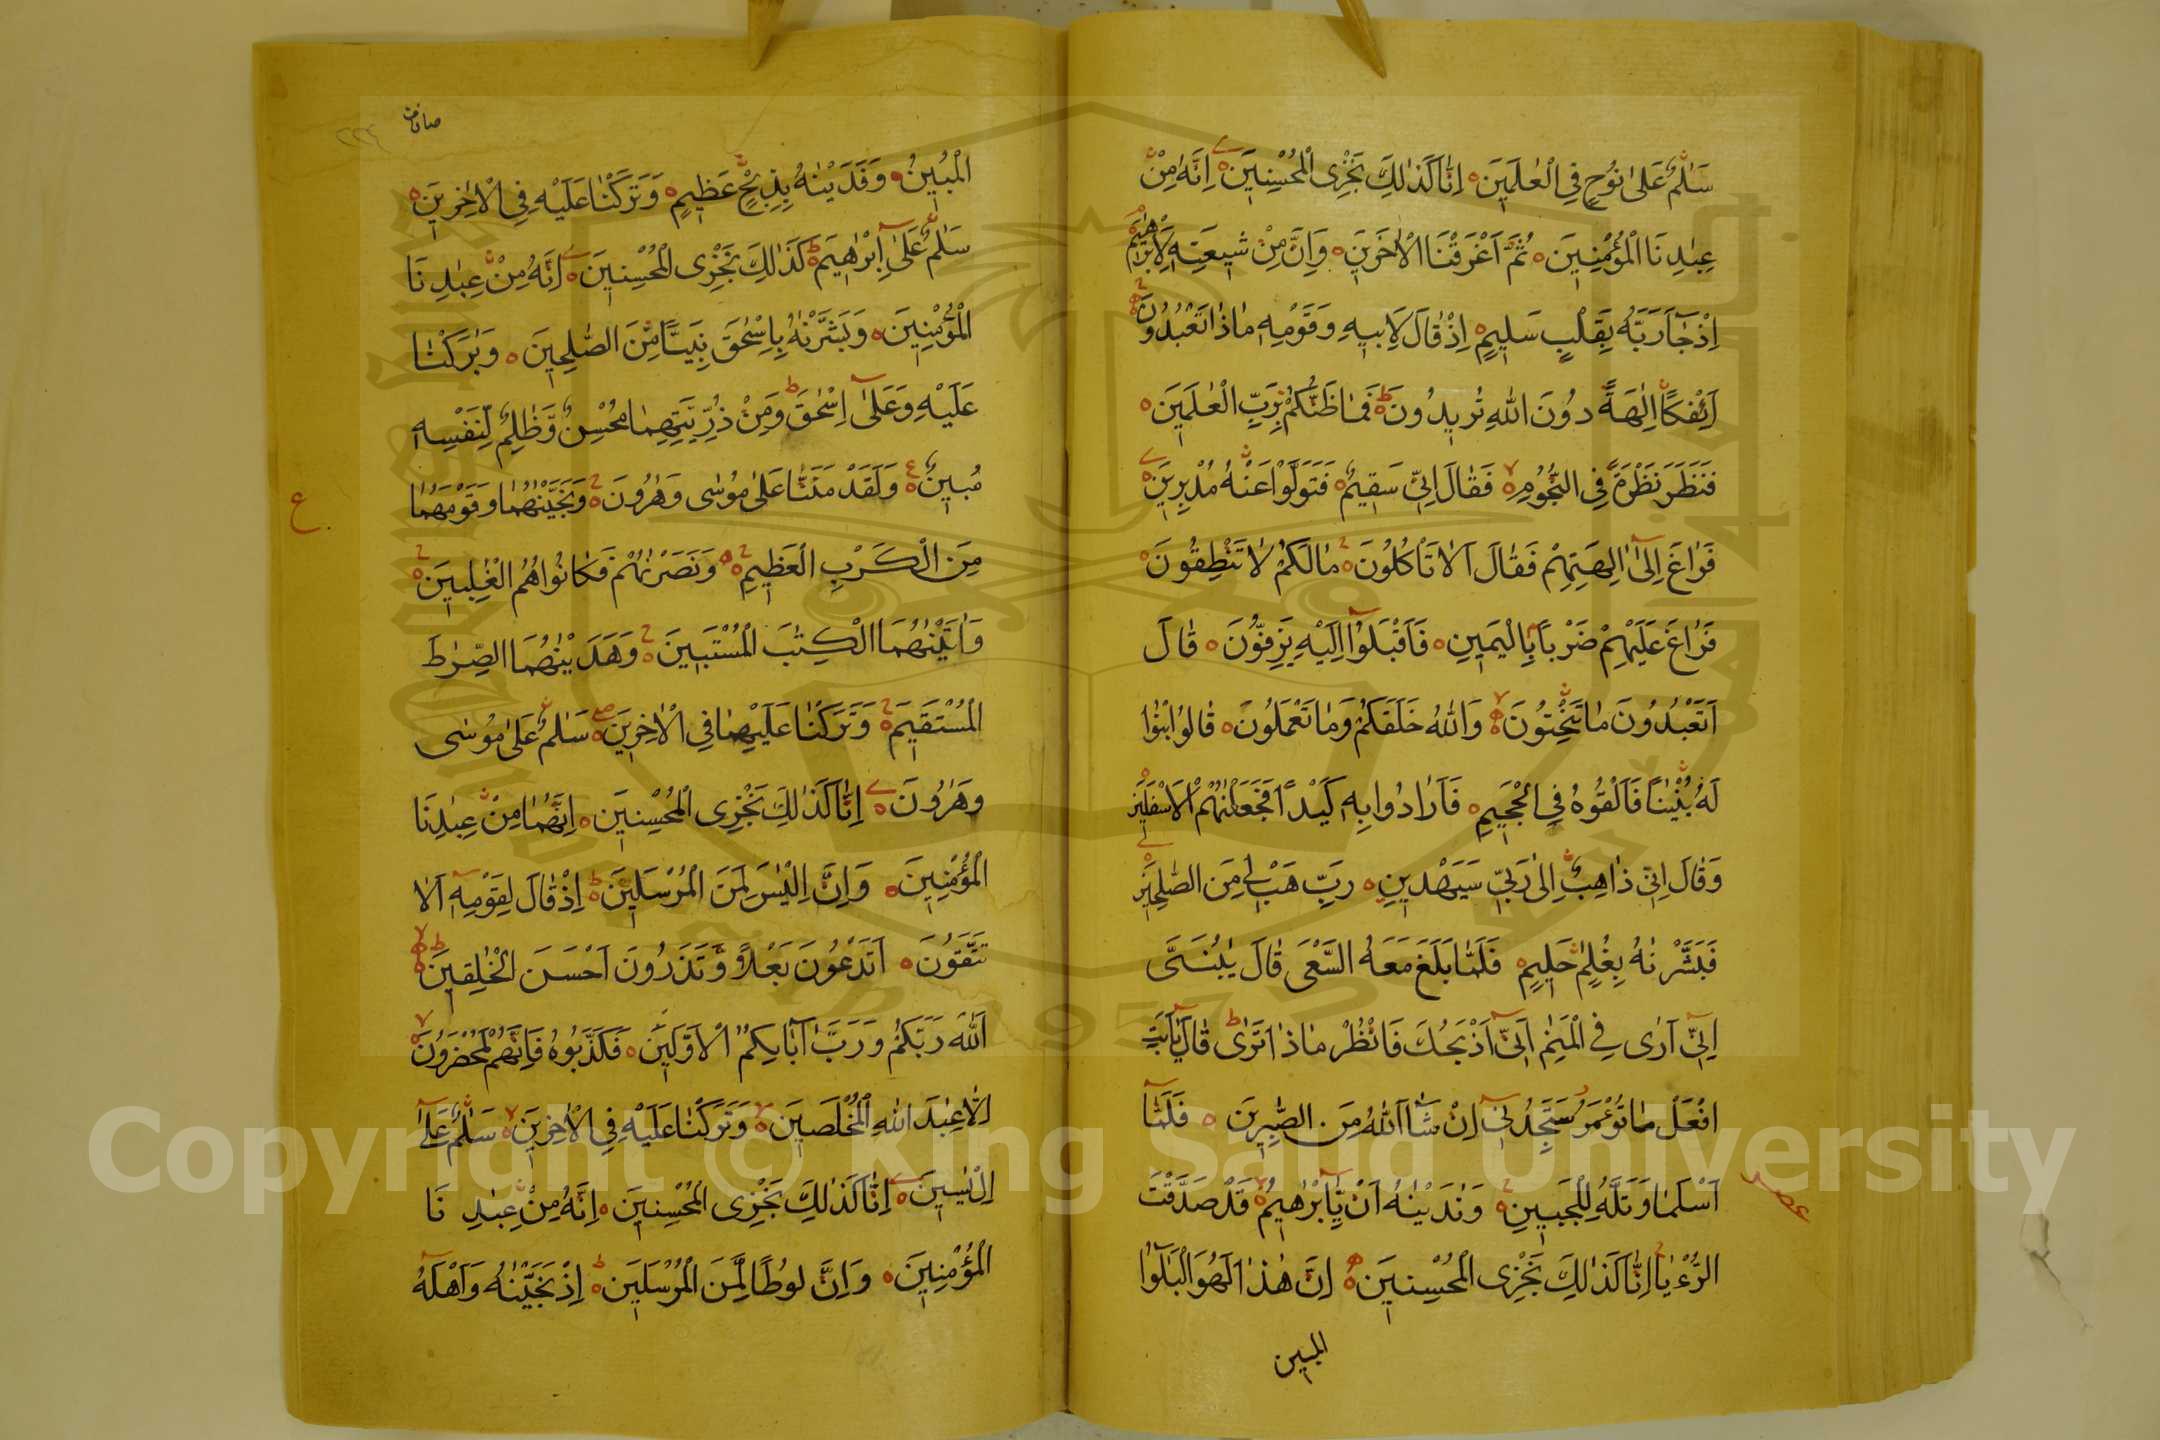 سَلٰمٌ عَلٰى نُوْحٍ فِى الْعٰلَمِيْنَ اِنَّا كَذٰلِكَ نَجْزِى الْمُحْسِنِيْنَ اِنَّهُ مِنْ
عِبَادِنَا الْمُؤْمِنِيْنَ ثُمَّ اَغْرَقْنَا الْاٰخَرِيْنَ وَاِنَّ مِنْ شِيْعَتِهٖ لَاِبْرٰهِيْمَ
اِذْ جَآءَ رَبَّهُ بِقَلْبٍ سَلِيْمٍ اِذْ قَالَ لِاَبِيْهِ وَقَوْمِهٖ مَاذَا تَعْبُدُوْنَ
اَئِفْكًا اٰلِهَةً دُوْنَ اللّٰهِ تُرِيْدُوْنَ فَمَا ظَنُّكُمْ بِرَبِّ الْعٰلَمِيْنَ
فَنَظَرَ نَظْرَةً فِى النُّجُوْمِ فَقَالَ اِنِّىْ سَقِيْمٌ فَتَوَلَّوْا عَنْهُ مُدْبِرِيْنَ
فَرَاغَ اِلٰٓى اٰلِهَتِهِمْ فَقَالَ اَلَا تَاْكُلُوْنَ مَالَكُمْ لَا تَنْطِقُوْنَ
فَرَاغَ عَلَيْهِمْ ضَرْبًا بِالْيَمِيْنِ فَاَقْبَلُوْٓا اِلَيْهِ يَزِفُّوْنَ قَالَ
اَتَعْبُدُوْنَ مَا تَنْحِتُوْنَ وَاللّٰهُ خَلَقَكُمْ وَمَا تَعْمَلُوْنَ قَالُوا ابْنُوْا
لَهُ بُنْيَانًا فَاَلْقُوْهُ فِى الْجَحِيْمِ فَاَرَادُوْا بِهٖ كَيْدًا فَجَعَلْنٰهُمُ الْاَسْفَلِيْنَ
وَقَالَ اِنِّىْ ذَاهِبٌ اِلٰى رَبِّىْ سَيَهْدِيْنِ رَبِّ هَبْ لِىْ مِنَ الصّٰلِحِيْنَ
فَبَشَّرْنٰهُ بِغُلٰمٍ حَلِيْمٍ فَلَمَّا بَلَغَ مَعَهُ السَّعْىَ قَالَ يٰبُنَىَّ
اِنِّىْٓ اَرٰى فِى الْمَنَامِ اَنِّىْٓ اَذْبَحُكَ فَانْظُرْ مَاذَا تَرٰى قَالَ يٰٓاَبَتِ
افْعَلْ مَا تُؤْمَرُ سَتَجِدُنِىْٓ اِنْ شَآءَ اللّٰهُ مِنَ الصّٰبِرِيْنَ فَلَمَّآ
اَسْلَمَا وَتَلَّهُ لِلْجَبِيْنِ وَنَادَيْنٰهُ اَنْ يّٰٓاِبْرٰهِيْمُ قَدْ صَدَّقْتَ
الرُّءْيَا اِنَّا كَذٰلِكَ نَجْزِى الْمُحْسِنِيْنَ اِنَّ هٰذَا لَهُوَ الْبَلٰٓؤُا
المبين
عصر
صافات
٢٢٤
الْمُبِيْنُ وَفَدَيْنٰهُ بِذِبْحٍ عَظِيْمٍ وَتَرَكْنَا عَلَيْهِ فِى الْاٰخِرِيْنَ
سَلٰمٌ عَلٰٓى اِبْرٰهِيْمَ كَذٰلِكَ نَجْزِى الْمُحْسِنِيْنَ اِنَّهُ مِنْ عِبَادِنَا
الْمُؤْمِنِيْنَ وَبَشَّرْنٰهُ بِاِسْحٰقَ نَبِيًّا مِّنَ الصّٰلِحِيْنَ وَبٰرَكْنَا
عَلَيْهِ وَعَلٰٓى اِسْحٰقَ وَمِنْ ذُرِّيَّتِهِمَا مُحْسِنٌ وَّظَالِمٌ لِّنَفْسِهٖ
مُبِيْنٌ وَلَقَدْ مَنَنَّا عَلٰى مُوْسٰى وَهٰرُوْنَ وَنَجَّيْنٰهُمَا وَقَوْمَهُمَا
ع
مِنَ الْكَرْبِ الْعَظِيْمِ وَنَصَرْنٰهُمْ فَكَانُوْا هُمُ الْغٰلِبِيْنَ
وَاٰتَيْنٰهُمَا الْكِتٰبَ الْمُسْتَبِيْنَ وَهَدَيْنٰهُمَا الصِّرَاطَ
الْمُسْتَقِيْمَ وَتَرَكْنَا عَلَيْهِمَا فِى الْاٰخِرِيْنَ سَلٰمٌ عَلٰى مُوْسٰى
وَهٰرُوْنَ اِنَّا كَذٰلِكَ نَجْزِى الْمُحْسِنِيْنَ اِنَّهُمَا مِنْ عِبَادِنَا
الْمُؤْمِنِيْنَ وَاِنَّ اِلْيَاسَ لَمِنَ الْمُرْسَلِيْنَ اِذْ قَالَ لِقَوْمِهٖٓ اَلَا
تَتَّقُوْنَ اَتَدْعُوْنَ بَعْلًا وَّتَذَرُوْنَ اَحْسَنَ الْخَالِقِيْنَ
اَللّٰهَ رَبَّكُمْ وَرَبَّ اٰبَآئِكُمُ الْاَوَّلِيْنَ فَكَذَّبُوْهُ فَاِنَّهُمْ لَمُحْضَرُوْنَ
اِلَّا عِبَادَ اللّٰهِ الْمُخْلَصِيْنَ وَتَرَكْنَا عَلَيْهِ فِى الْاٰخِرِيْنَ سَلٰمٌ عَلٰٓى
اِلْ يَاسِيْنَ اِنَّا كَذٰلِكَ نَجْزِى الْمُحْسِنِيْنَ اِنَّهُ مِنْ عِبَادِنَا
الْمُؤْمِنِيْنَ وَاِنَّ لُوْطًا لَّمِنَ الْمُرْسَلِيْنَ اِذْ نَجَّيْنٰهُ وَاَهْلَهُ
Copyright © King Saud University